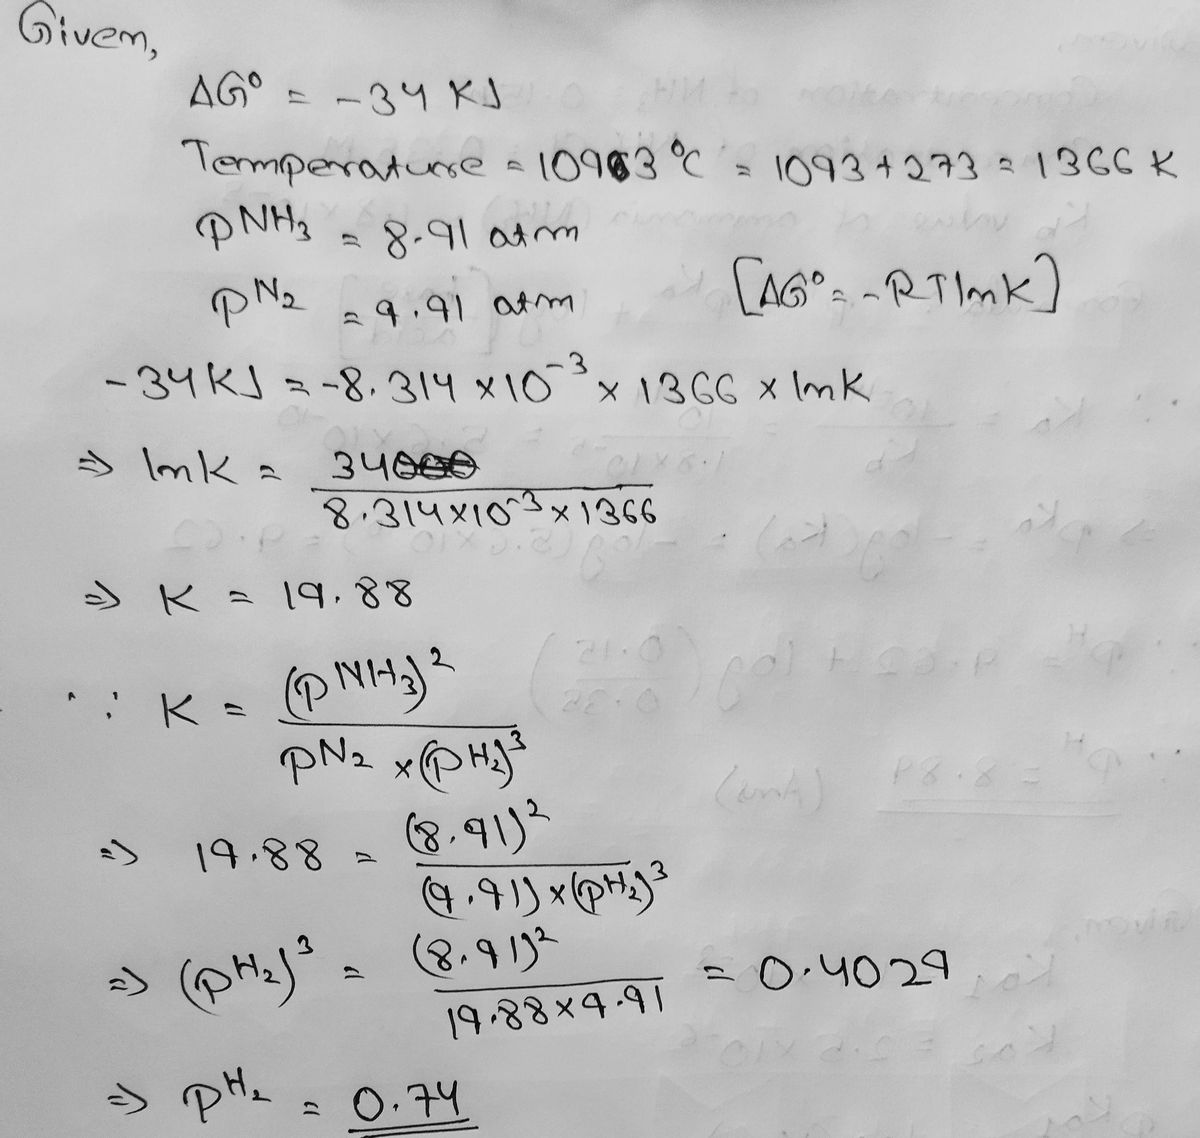 Given,
ΔG° = -34 KJ
Temperature = 1093 °C = 1093 + 273 = 1366 K
pNH₃ = 8.91 atm
pN₂ = 9.91 atm [ΔG° = -RTlnK]
-34KJ = -8.314 × 10⁻³ × 1366 × lnK
⇒ lnK = 34 / 8.314×10⁻³×1366
⇒ K = 19.88
∵ K = (pNH₃)² / pN₂ × (pH₂)³
⇒ 19.88 = (8.91)² / (9.91) × (pH₂)³
⇒ (pH₂)³ = (8.91)² / 19.88×9.91 = 0.4029
⇒ pH₂ = 0.74